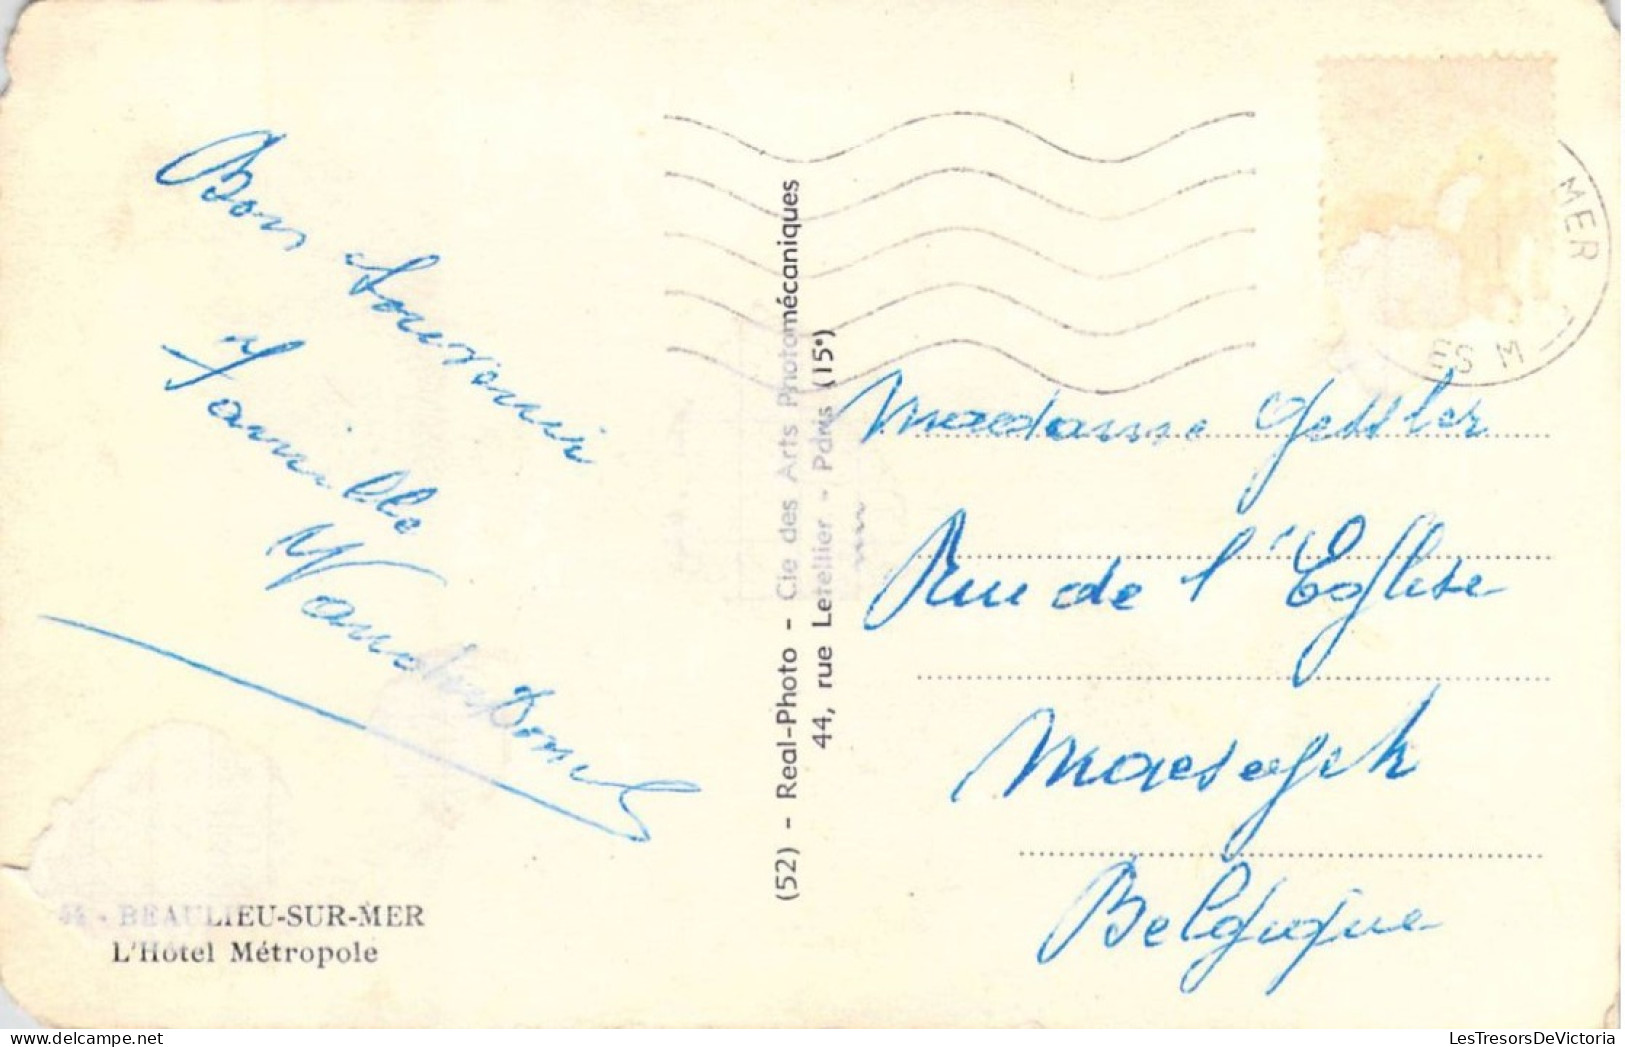 Bon Souvenir
Famille
(52) - Real-Photo - Cie des Arts Photomécaniques
44, rue Letellier - Paris (15e)
MER
ES M
Madame Gessler
Rue de l'Eglise
Maeseyck
Belgique
44 - BEAULIEU-SUR-MER
L'Hôtel Métropole
LesTresorsDeVictoria